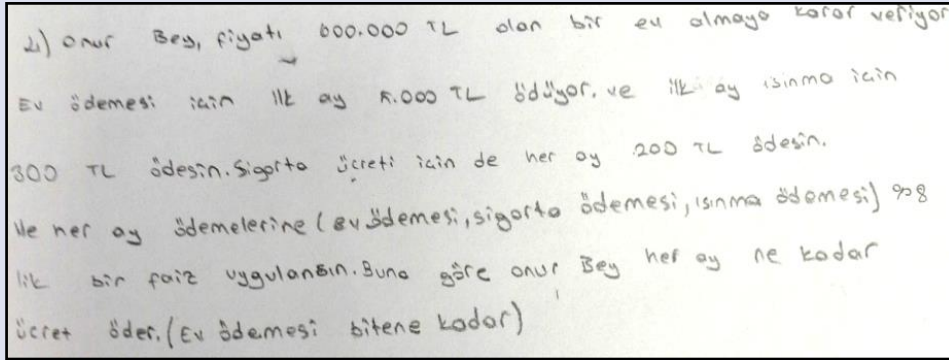 2) Onur Bey, fiyatı 600.000 TL olan bir ev almaya karar veriyor
Ev ödemesi için ilk ay 5.000 TL ödüyor. ve ilk ay ısınma için
300 TL ödesin. Sigorta ücreti için de her ay 200 TL ödesin.
Ve her ay ödemelerine (ev ödemesi, sigorta ödemesi, ısınma ödemesi) %8
lik bir faiz uygulansın. Buna göre Onur Bey her ay ne kadar
ücret öder. (Ev ödemesi bitene kadar)